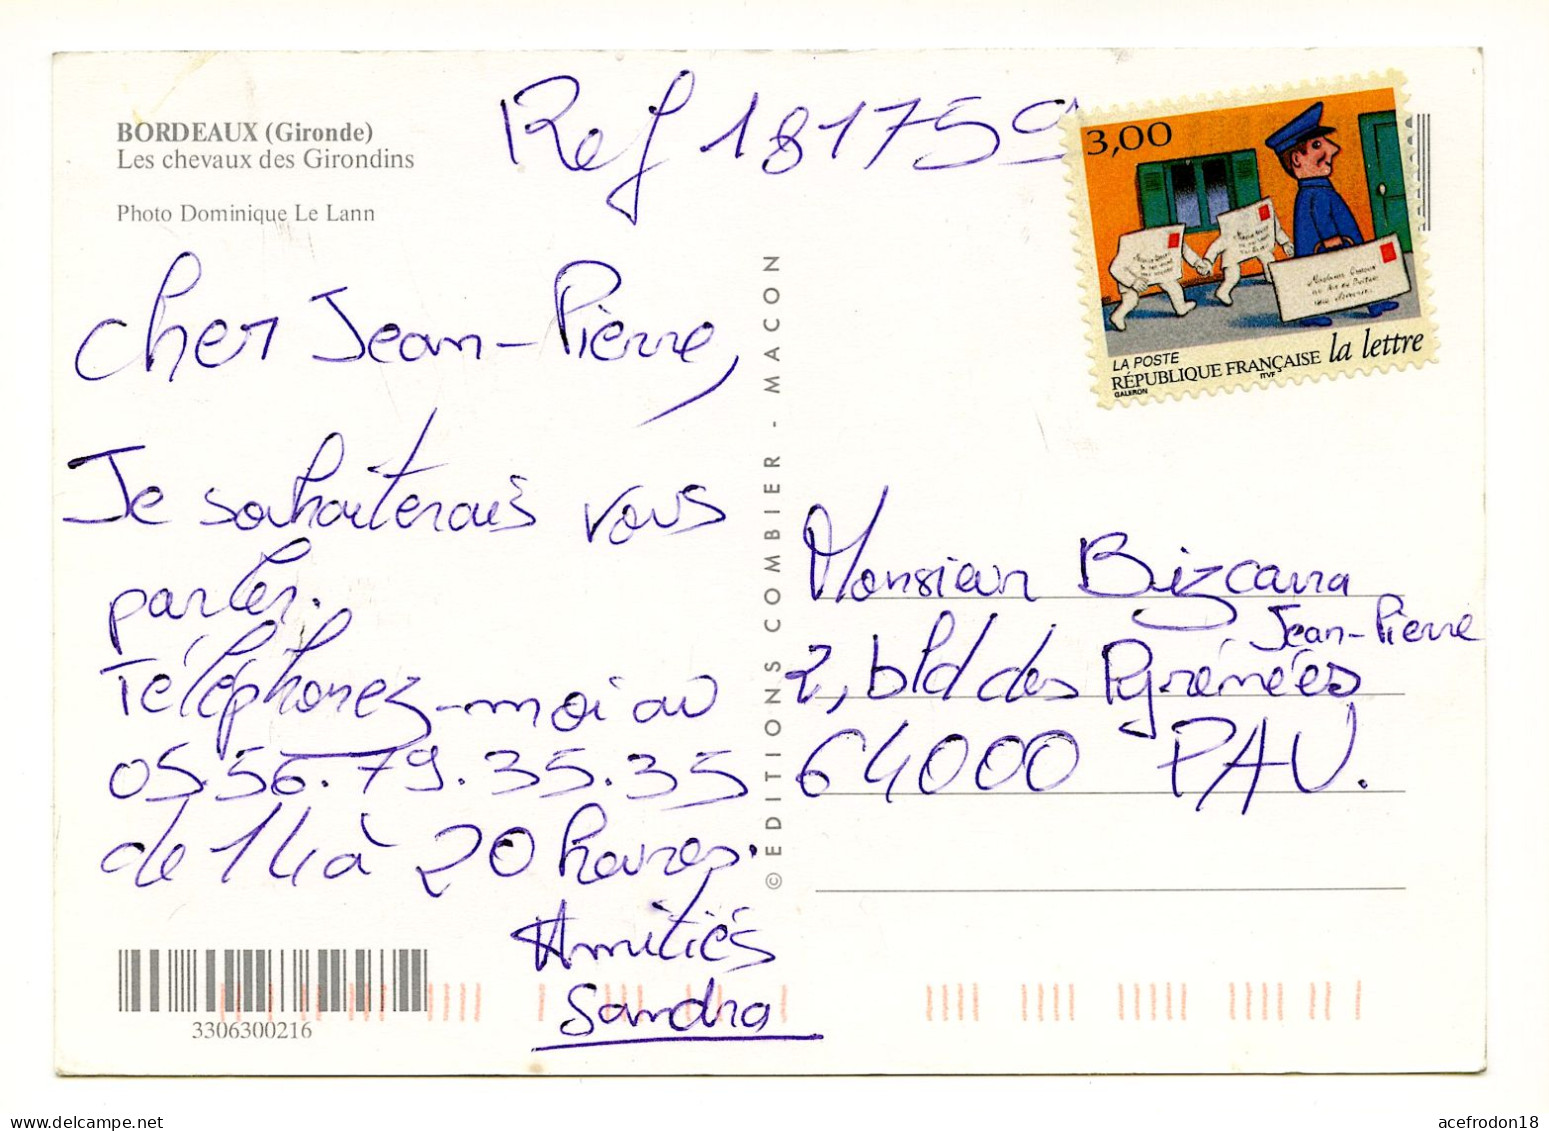 BORDEAUX (Gironde)
Les chevaux des Girondins
Photo Dominique Le Lann
Ref 181759
Cher Jean-Pierre,
Je souhaiterais vous
parler.
Téléphonez-moi au
05.56.79.35.35
de 14 à 20 heures.
Amitiés
Sandra
3306300216
© EDITIONS COMBIER - MACON
3,00
LA POSTE
RÉPUBLIQUE FRANÇAISE la lettre
ITVF
GALERON
Monsieur Bizcarra
Jean-Pierre
2, bld des Pyrénées
64000 PAU.
acefrodon18